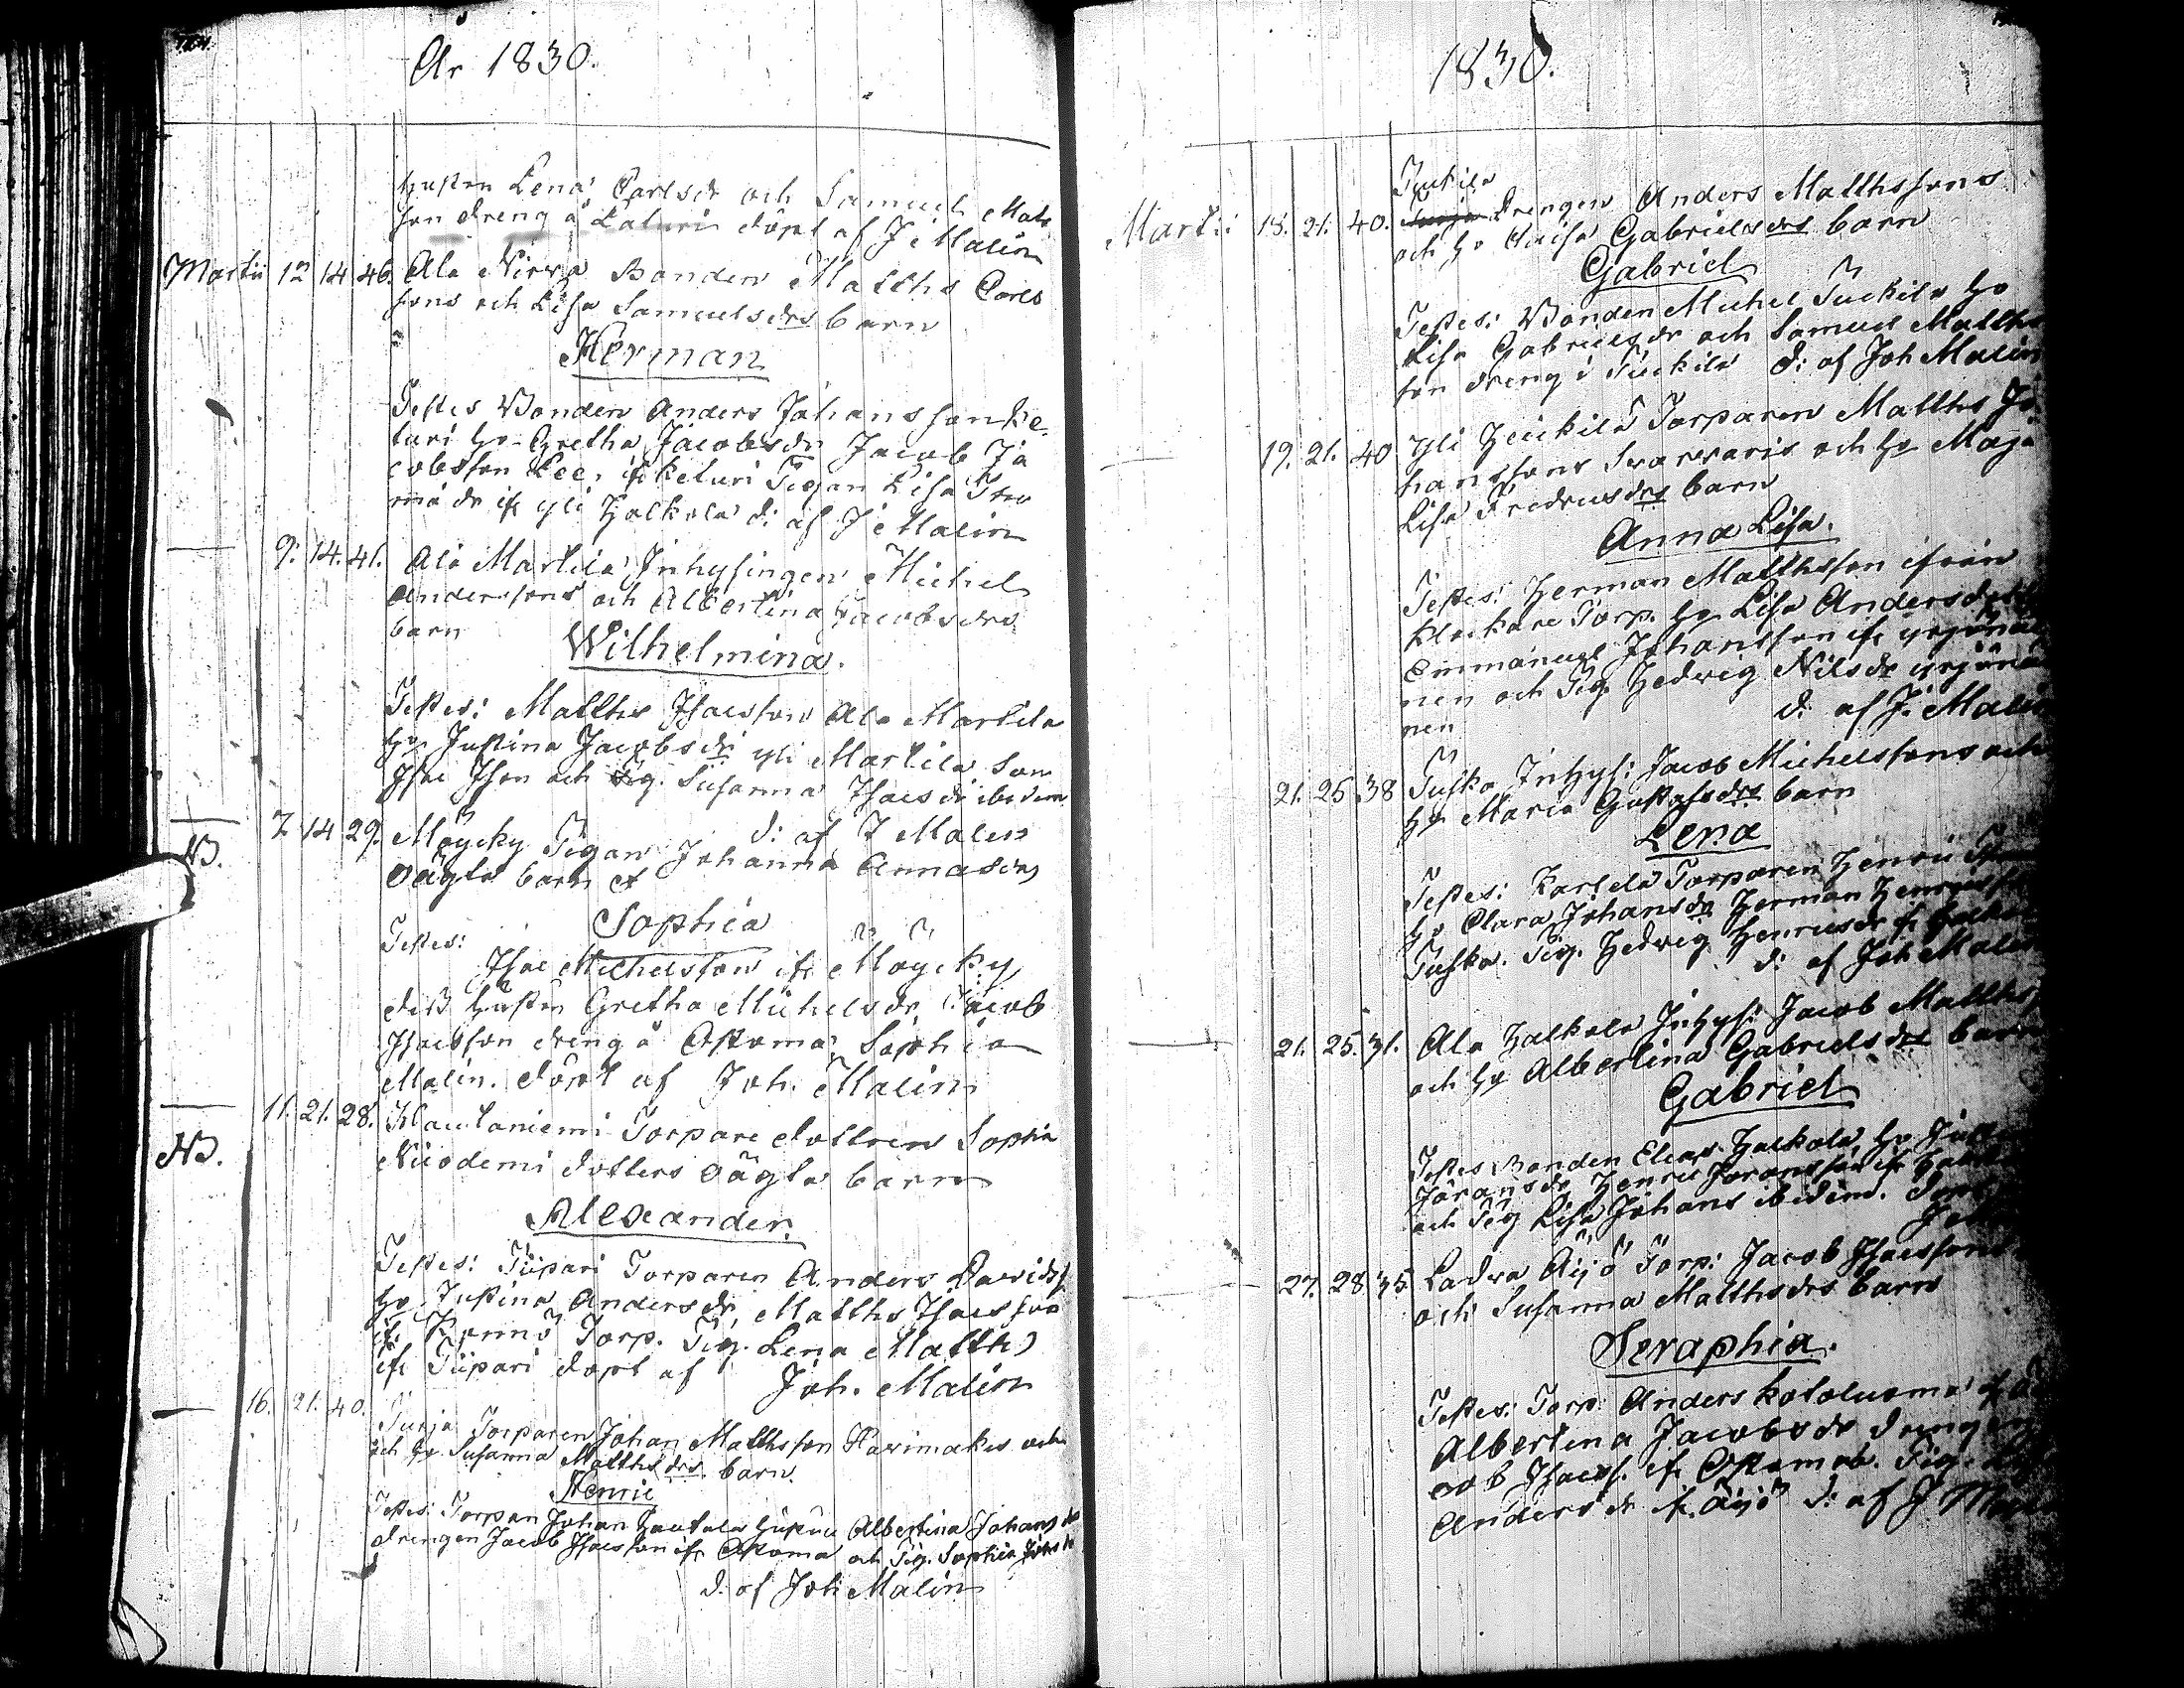 År 1830.
hustrun Lena Carlsdr och Samuel Matts
son dreng å Laturi döpt af J Malin
Martii 12 14 46. Ala Nirva Bonden Matths Carls
sons och Lisa Samuelsdrs barn
Herman
Testes Bonden Anders Johansson Ke
turi h. Gretha Jacobsdr Jacob Ja
cobsson ifr Keturi Pigan Lisa
dr ifr Yli Halkola d: af J Malin
9. 14. 41. Ala Martila Inhysingen Michel
Anderssons och Albertina Jacobsdrs
barn
Wilhelmina.
Testes: Matths Isacsson Ala Martila
h. Justina Jacobsdr Yli Martila
Isac och Pig. Susanna Isacsdr ibidem
d: af J Malin
NB. 7. 14 29. Möycky Pigan Johanna Annasdrs
oägta barn
Sophia
Testes:
Isac Michelsson ifr Möycky
dess hustru Gretha Michelsdr, Jacob
Isacsson dreng å Oxkoma Sophia
Malin. döpt af Joh. Malin
NB. 11. 21. 28. Hautaniemi Torpare dottren Sophia
Nicodemi dotters oägta barn
Alexander.
Testes: Tiipari Torparen Anders Davidss.
h. Justina Andersdr, Matths Isacsson
ifr Torp. Pig. Lena Matth
ifr Tiipari döpt af
Joh. Malin
16. 21. 40. Turja Torparen Johan Matthsson Harimakis och
och h. Susanna Matthsdrs barn.
Henric
Testes: Torparn Johan Hautala hustru Albertina Johansdr
drengen Jacob Isacsson ifr och Pig. Sophia
d. af Joh Malin
1830.
Tuikila
Martii 18. 21. 40. Turja drengen Anders Matthssons
och h. Caisa Gabrielsdrs barn
Gabriel
Testes: Bonden Michel Tuikila h.
Lisa Gabrielsdr och Samuel Matths
son dreng i Tuikila d: af Joh Malin
19. 21. 40 Yli Heickilä Torparen Matths Jo
hanssons och h. Maja
Lisa Fredricsdrs barn
Anna Lisa.
Testes: Herman Matthsson ifrån
Klockare Torp. h. Lisa Andersdotter
Emmanuel Johansson ifr Yrjönä
nen och Pig. Hedvig Nilsdr Yrjönä
nen
d: af J. Malin
21. 25 38 Tuska Inhys: Jacob Michelssons och
h. Maria Gustafsdrs barn
Lena
Testes: Karhela Torparen Henric
h. Clara Johansdr Herman Henricss
Tuska. Pig. Hedvig Henricsdr ifr
d: af Joh Malin
21. 25. 31. Ala Halkola Inhys: Jacob Matths
och h. Albertina Gabrielsdrs barn
Gabriel
Testes Bonden Elias Halkola, h.
Göransdr Henric Göransson ifr
och Pig Lisa Johans ibidem.
27. 28 35 Ladva Äijö Torp: Jacob Isacssons
och Susanna Matthsdrs barn
Seraphia.
Testes: Torp: Anders Kotoluoma
Albertina Jacobsdr drengen
cob Isacss. ifr Pig.
Andersdr ifr Äijö d: af J